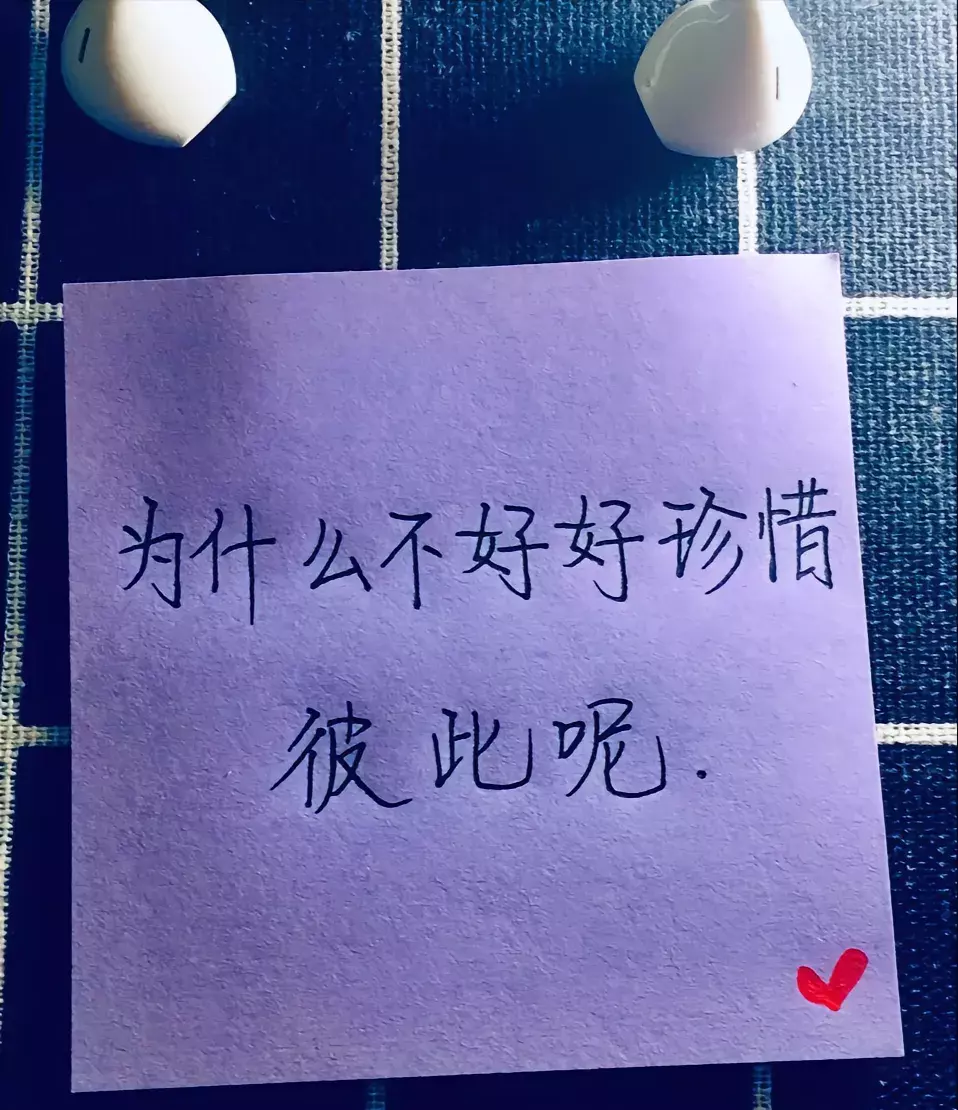 为什么不好好珍惜
彼此呢.